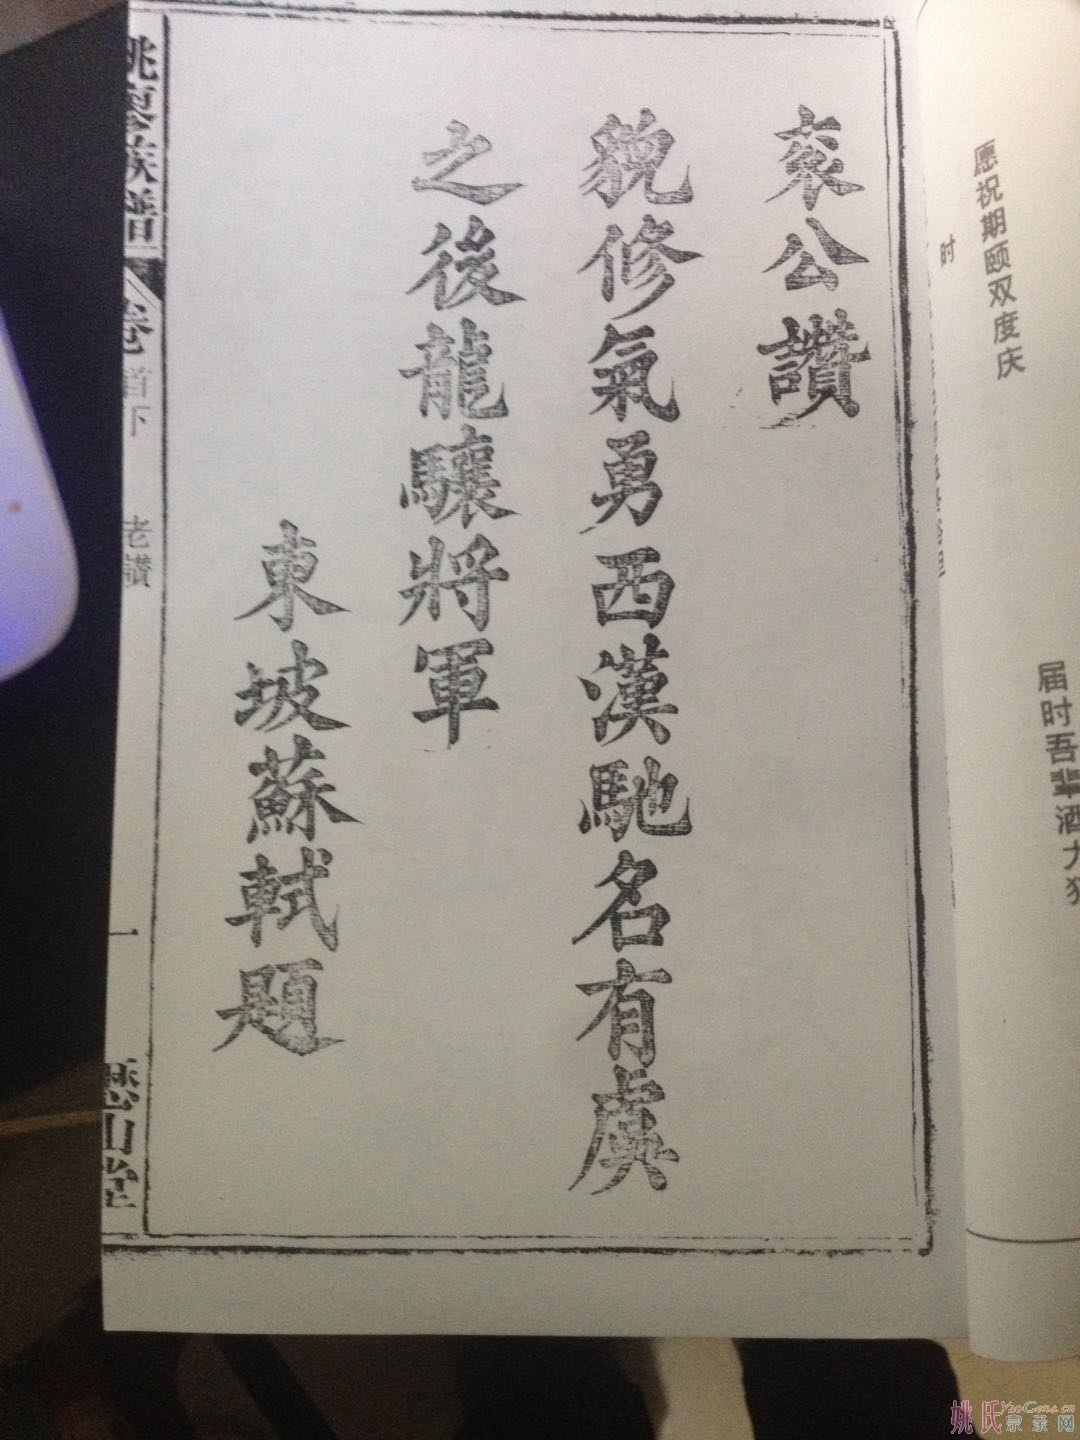 愿祝期颐双度庆
时
届时吾辈洒
公讚
貌修氣勇西漢馳名有虞
之後龍驤將軍
東坡蘇軾題
姚 族譜 卷首下 老讚 一 歷山堂
姚氏宗亲网